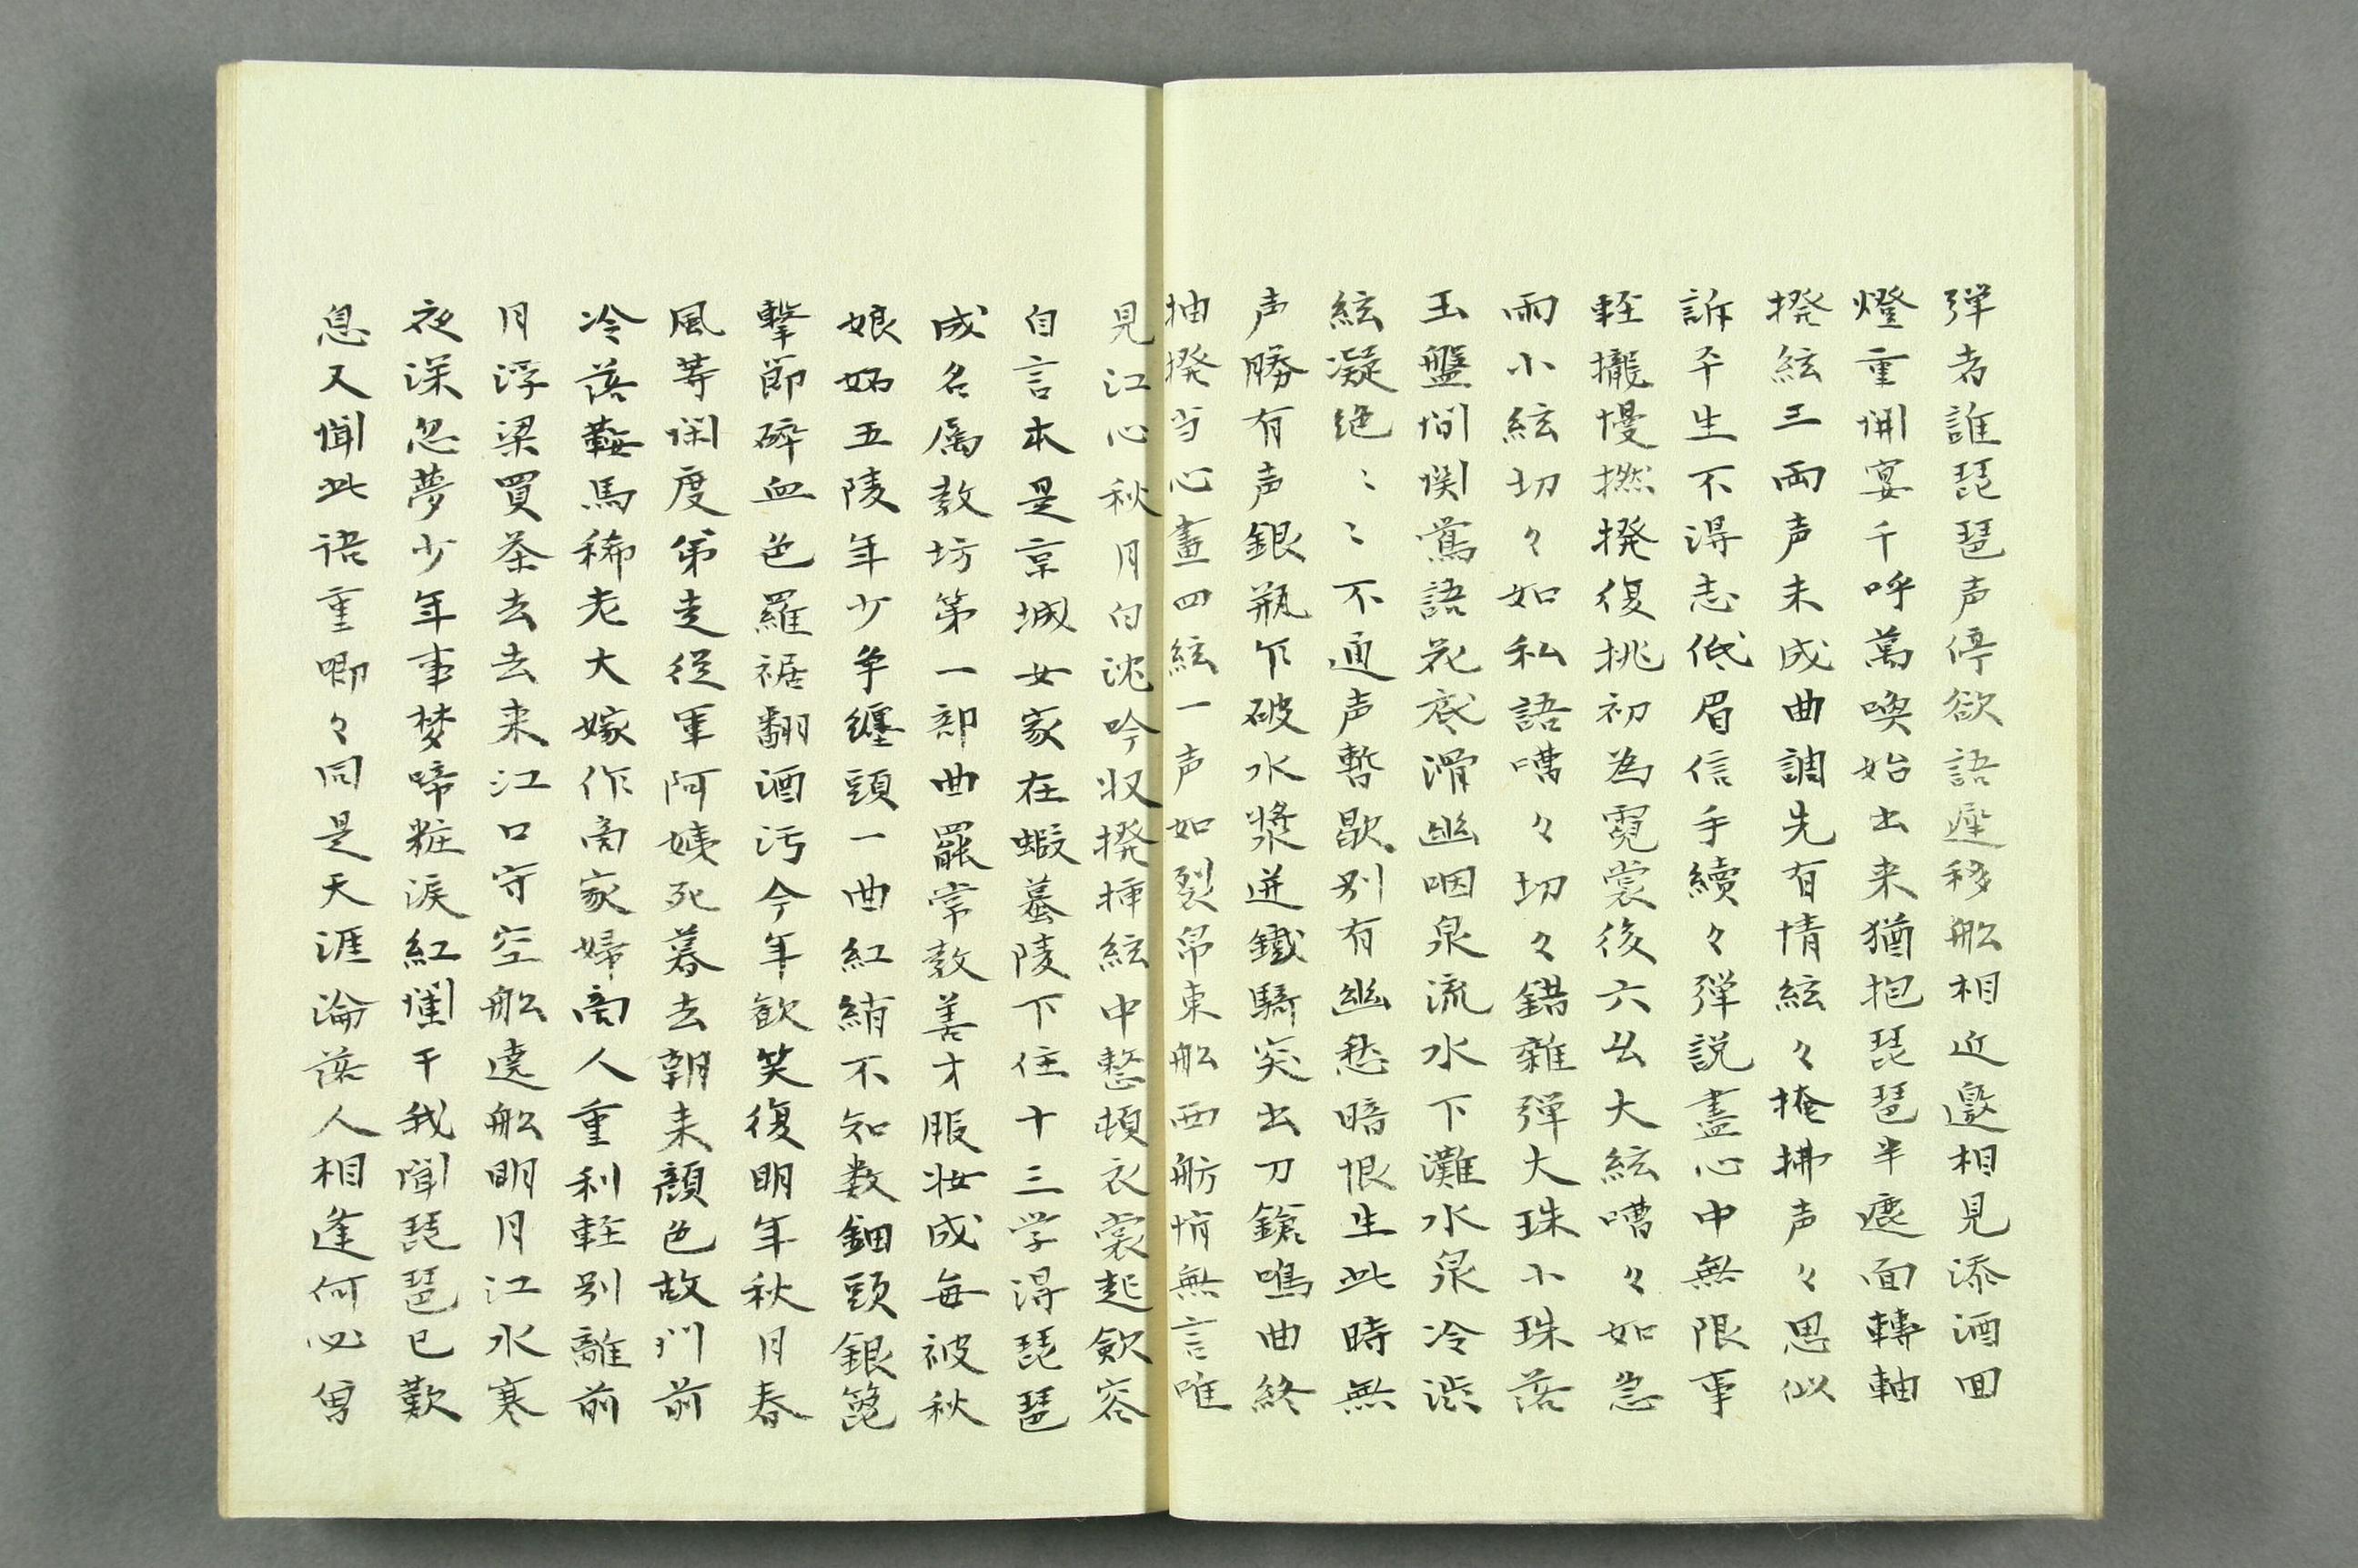 弾者誰琵琶声停欲語遅移舩相近邀相見添酒回
燈重開宴千呼萬喚始出来猶抱琵琶半遮面轉軸
撥絃三両声未成曲調先有情絃々掩拂声々思似
訴平生不得志低眉信手續々弾説盡心中無限事
軽攏慢撚撥復挑初為霓裳後六幺大絃嘈々如急
雨小絃切々如私語嘈々切々錯雜弾大珠小珠落
玉盤間関鶯語花底滑幽咽泉流水下灘水泉冷渋
絃凝絶〻〻不通声暫歇別有幽愁暗恨生此時無
声勝有声銀瓶乍破水漿迸鐵騎突出刀鎗鳴曲終
抽撥当心畫四絃一声如裂帛東舩西舫悄無言唯
見江心秋月白沈吟収撥挿絃中整頓衣裳起斂容
自言本是京城女家在蝦蟇陵下住十三学得琵琶
成名属教坊第一部曲罷常教善才服妝成毎被秋
娘妬五陵年少争纏頭一曲紅綃不知数鈿頭銀篦
擊節碎血色羅裾翻酒汚今年歓笑復明年秋月春
風等閑度弟走従軍阿姨死暮去朝来顔色故門前
冷落鞍馬稀老大嫁作商家婦商人重利軽別離前
月浮梁買茶去去来江口守空舩遶舩明月江水寒
夜深忽夢少年事梦啼粧涙紅闌干我聞琵琶已歎
息又聞此語重唧々同是天涯淪落人相逢何必曽